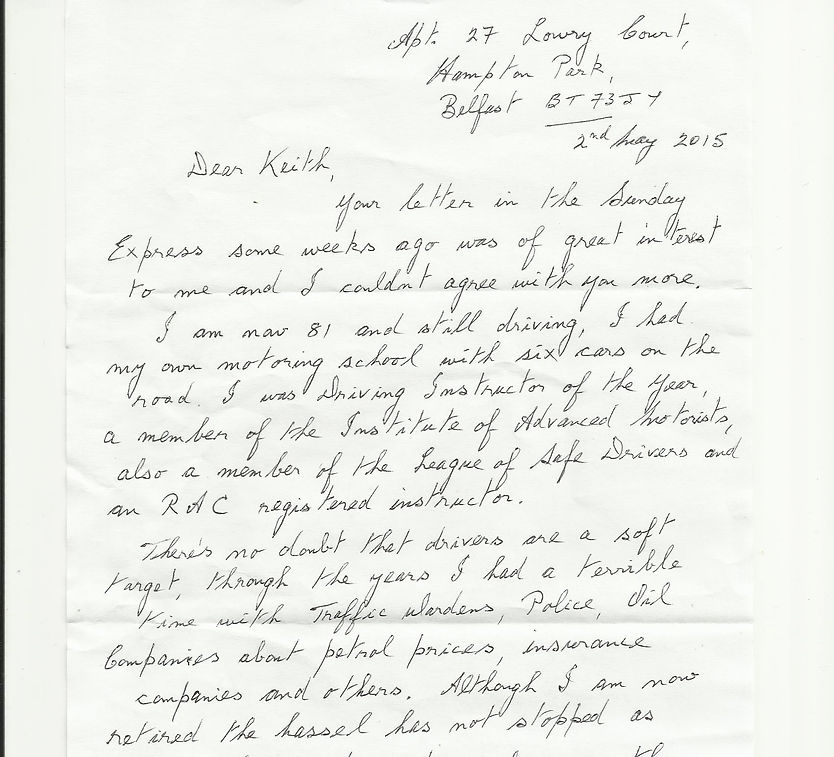 Apt. 27 Lowry Court,
Hampton Park,
Belfast BT7 3JY
2nd May 2015
Dear Keith,
Your letter in the Sunday
Express some weeks ago was of great interest
to me and I couldn't agree with you more.
I am now 81 and still driving, I had
my own motoring school with six cars on the
road. I was Driving Instructor of the Year,
a member of the Institute of Advanced Motorists,
also a member of the League of Safe Drivers and
an RAC registered instructor.
There's no doubt that drivers are a soft
target, through the years I had a terrible
time with Traffic Wardens, Police, Oil
Companies about petrol prices, insurance
companies and others. Although I am now
retired the hassel has not stopped as